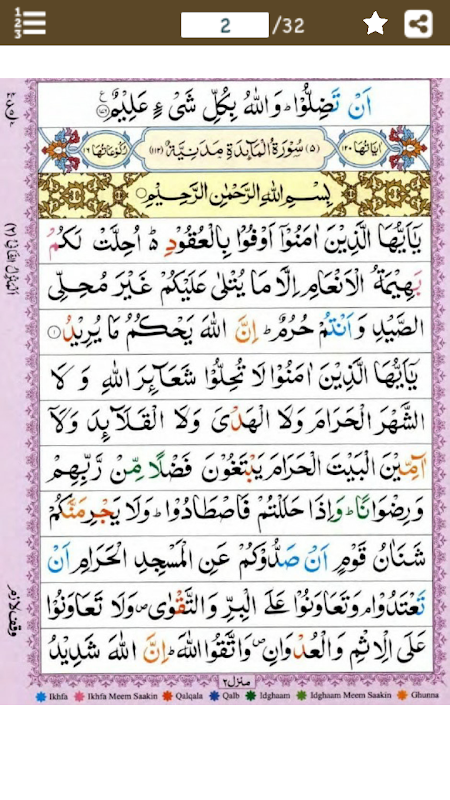 2 /32
اَنْ تَضِلُّوْا ؕ وَاللّٰهُ بِكُلِّ شَىْءٍ عَلِيْمٌ
اٰيَاتُهَا ١٢٠ (٥) سُوْرَةُ الْمَآئِدَةِ مَدَنِيَّةٌ (١١٢) رُكُوْعَاتُهَا ١٦
بِسْمِ اللّٰهِ الرَّحْمٰنِ الرَّحِيْمِ
يٰۤاَيُّهَا الَّذِيْنَ اٰمَنُوْۤا اَوْفُوْا بِالْعُقُوْدِ ؕ اُحِلَّتْ لَكُمْ
بَهِيْمَةُ الْاَنْعَامِ اِلَّا مَا يُتْلٰى عَلَيْكُمْ غَيْرَ مُحِلِّى
الصَّيْدِ وَاَنْتُمْ حُرُمٌ ؕ اِنَّ اللّٰهَ يَحْكُمُ مَا يُرِيْدُ ١
يٰۤاَيُّهَا الَّذِيْنَ اٰمَنُوْا لَا تُحِلُّوْا شَعَآئِرَ اللّٰهِ وَلَا
الشَّهْرَ الْحَرَامَ وَلَا الْهَدْىَ وَلَا الْقَلَآئِدَ وَلَاۤ
آٰمِّيْنَ الْبَيْتَ الْحَرَامَ يَبْتَغُوْنَ فَضْلًا مِّنْ رَّبِّهِمْ
وَرِضْوَانًا ؕ وَاِذَا حَلَلْتُمْ فَاصْطَادُوْا ؕ وَلَا يَجْرِمَنَّكُمْ
شَنَاٰنُ قَوْمٍ اَنْ صَدُّوْكُمْ عَنِ الْمَسْجِدِ الْحَرَامِ اَنْ
تَعْتَدُوْا ۘ وَتَعَاوَنُوْا عَلَى الْبِرِّ وَالتَّقْوٰى ۪ وَلَا تَعَاوَنُوْا
عَلَى الْاِثْمِ وَالْعُدْوَانِ ۪ وَاتَّقُوا اللّٰهَ ؕ اِنَّ اللّٰهَ شَدِيْدُ
وقف لازم
منزل ٢
Ikhfa Ikhfa Meem Saakin Qalqala Qalb Idghaam Idghaam Meem Saakin Ghunna